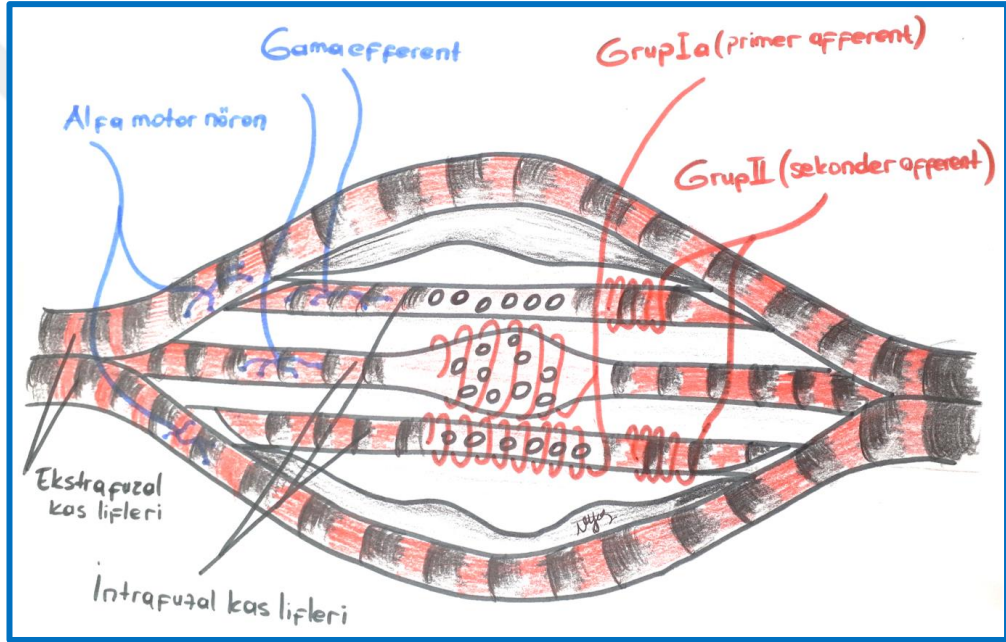 Gama efferent
Grup Ia (primer afferent)
Alfa motor nöron
Grup II (sekonder afferent)
Ekstrafuzal
kas lifleri
İntrafuzal kas lifleri